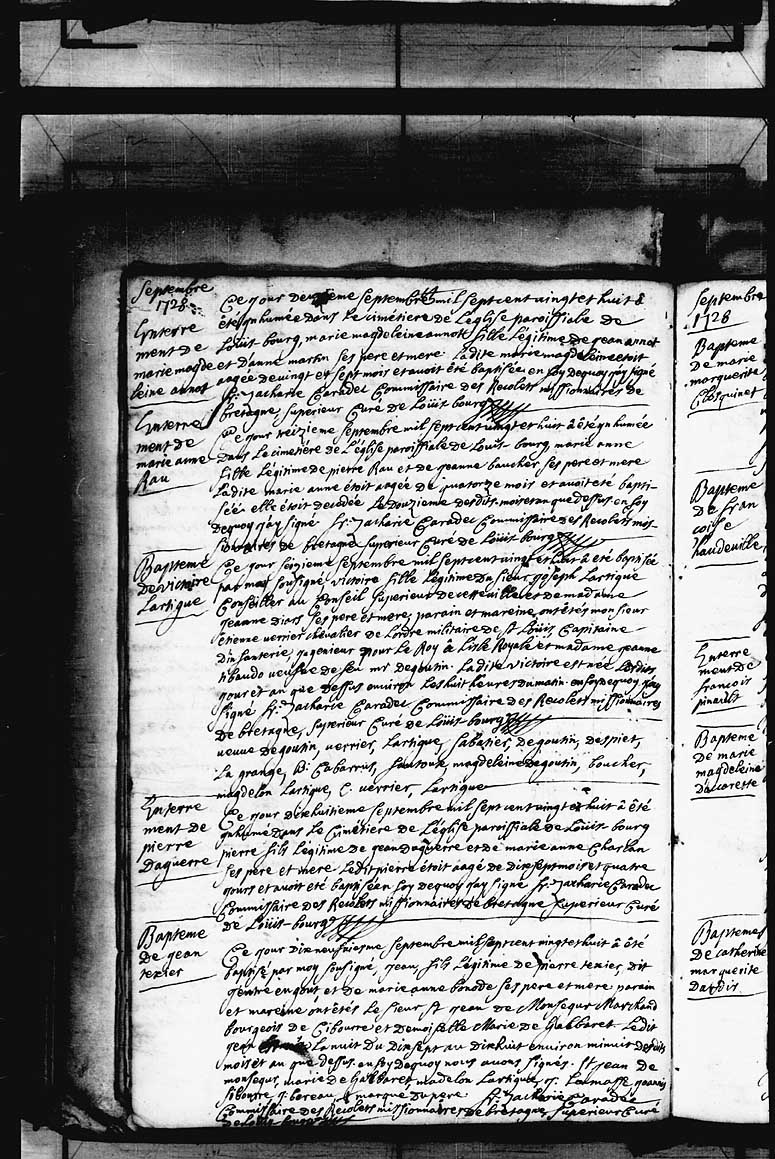 Septembre
1728
Enterre
ment de
marie magde
leine annot
Ce jour deuxieme septembre mil sept cent vingt et huit à
été inhumée dans le cimetiere de L'église paroissiale de
Loüis bourg, marie magdeleine annott fille Légitime de jean annot
et d'anne martin ses pere et mere Ladite marie magdeleine etoit
aagée de vingt et sept mois et avoit été baptisée en foy dequoy j'ay signé
fr. Zacharie Caradec Commissaire des Recolets missionnaires de
bretagne superieur Curé de Loüisbourg
Enterre
ment de
marie anne
Rau
Ce jour treizieme septembre mil sept cent vingt et huit à été inhumée
dans Le cimetiére de L'église paroissiale de Louis-bourg, marie anne
fille Légitime de pierre Rau et de jeanne baucher, ses pere et mere
Ladite marie anne étoit aagée de quatorze mois et avoit eté bapti-
sée elle étoit decedée Le douzieme desdits mois et an que dessus, en foy
dequoy j'ay signé fr. Zacharie Caradec Commissaire des Recolets mis-
sionnaires de bretagne superieur Curé de Loüis bourg
Bapteme
de victoire
Lartigue
Ce jour seizieme septembre mil sept cent vingt et huit à été baptisée
par moy sousigné, victoire fille Légitime du sieur joseph Lartigue
Conseiller au Conseil superieur de cette ville et de madame
jeanne diars ses pere et mere, parain et mareine ont étés monsieur
etienne verrier chevalier de Lordre militaire de st Loüis, Capitaine
Dinfanterie, ingenieur pour Le Roy à Lisle Royale et madame jeanne
tibaudo veufve de feu mr degoutin. Ladite victoire est née Lesdits
jour et an que dessus environ Les huit heures du matin. en foy dequoy j'ay
signé fr. Zacharie Caradec Commissaire des Recolets missionnaires
de bretagne, superieur Curé de Loüis bourg
veuve degoutin, verrier, Lartigue, sabatier, degoutin, despiet,
La grange, B: Cabarrus, magdeleine degoutin, boucher,
magdelon Lartigue, C. verrier, Lartigue
Enterre
ment de
pierre
Daguerre
Ce jour dixhuitieme septembre mil sept cent vingt et huit à été
inhumé dans Le Cimétiere de L'église paroissiale de Loüis-bourg
pierre fils Légitime de jean daguerre et de marie anne Charlan
ses pere et mere Ledit pierre étoit aagé de dix sept mois et quatre
jours et avoit été baptisé en foy dequoy j'ay signé fr. Zacharie Caradec
Commissaire des Recolets missionnaires de bretagne superieur Curé
de Loüis-bourg
Bapteme
de jean
texier
Ce jour dix neufviesme septembre mil sept cent vingt et huit à été
baptisé par moy sousigné, jean, fils Légitime de pierre texier, dit
et de marie anne bonode ses pere et mere parain
et mareine ont étés Le sieur st jean de Monsegur Marchand
bourgeois de Cibourre et Demoiselle Marie de Gabbaret Ledit
jean Lanuit du dixsept au dixhuit environ minuit desdits
mois et an que dessus. en foy dequoy nous avons signés. St jean de
monsegur, marie de Gabbaret, madelon Lartigue,
marque du pere fr. Zacharie Caradec
Commissaire des Recolets missionnaires de bretagne, superieur Curé
de Loüis bourg
Septembre
1728
Bapteme
de marie
marguerite
Closquinet
Bapteme
de fran
coise
haudeville
Enterre
ment de
francois
pinault
Bapteme
de marie
magdeleine
Daccarette
Baptemes
de catherine
marguerite
Dardis